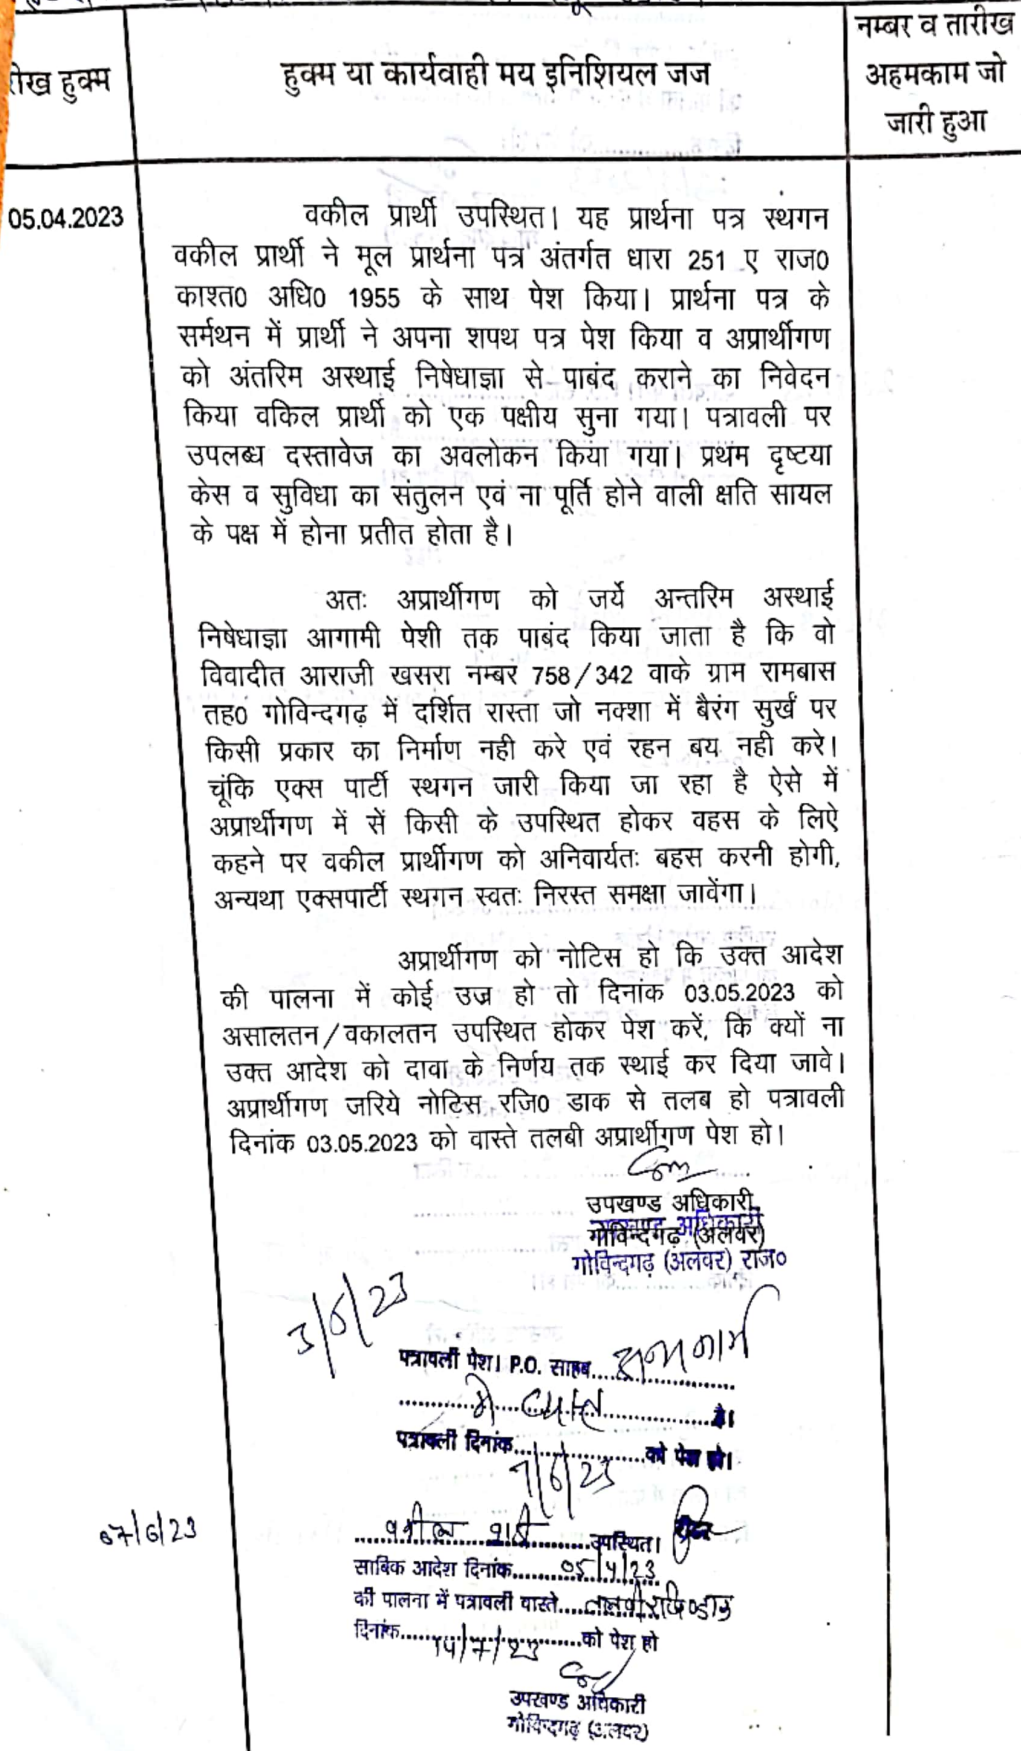 नम्बर व तारीख
अहमकाम जो
जारी हुआ
रीख हुक्म
हुक्म या कार्यवाही मय इनिशियल जज
05.04.2023
वकील प्रार्थी उपस्थित। यह प्रार्थना पत्र स्थगन
वकील प्रार्थी ने मूल प्रार्थना पत्र अंतर्गत धारा 251 ए राज०
काश्त० अधि० 1955 के साथ पेश किया। प्रार्थना पत्र के
सर्मथन में प्रार्थी ने अपना शपथ पत्र पेश किया व अप्रार्थीगण
को अंतरिम अस्थाई निषेधाज्ञा से पाबंद कराने का निवेदन
किया वकिल प्रार्थी को एक पक्षीय सुना गया। पत्रावली पर
उपलब्ध दस्तावेज का अवलोकन किया गया। प्रथम दृष्टया
केस व सुविधा का संतुलन एवं ना पूर्ति होने वाली क्षति सायल
के पक्ष में होना प्रतीत होता है।
अतः अप्रार्थीगण को जर्ये अन्तरिम अस्थाई
निषेधाज्ञा आगामी पेशी तक पाबंद किया जाता है कि वो
विवादीत आराजी खसरा नम्बर 758/342 वाके ग्राम रामबास
तह० गोविन्दगढ़ में दर्शित रास्ता जो नक्शा में बैरंग सुर्ख पर
किसी प्रकार का निर्माण नही करे एवं रहन बय नही करे।
चूंकि एक्स पार्टी स्थगन जारी किया जा रहा है ऐसे में
अप्रार्थीगण में सें किसी के उपस्थित होकर वहस के लिऐ
कहने पर वकील प्रार्थीगण को अनिवार्यतः बहस करनी होगी,
अन्यथा एक्सपार्टी स्थगन स्वतः निरस्त समक्षा जावेंगा।
अप्रार्थीगण को नोटिस हो कि उक्त आदेश
की पालना में कोई उज्र हो तो दिनांक 03.05.2023 को
असालतन/वकालतन उपस्थित होकर पेश करें, कि क्यों ना
उक्त आदेश को दावा के निर्णय तक स्थाई कर दिया जावे।
अप्रार्थीगण जरिये नोटिस रजि० डाक से तलब हो पत्रावली
दिनांक 03.05.2023 को वास्ते तलबी अप्रार्थीगण पेश हो।
उपखण्ड अधिकारी
उपखण्ड अधिकारी
गोविन्दगढ़ (अलवर)
गोविन्दगढ़ (अलवर) राज०
3/5/23
पत्रावली पेश। P.O. साहब.... अन्य कार्य
में व्यस्त है।
पत्रावली दिनांक 7/6/23 को पेश हो।
रीडर
07/6/23
वकील प्रार्थी उपस्थित।
साबिक आदेश दिनांक 05/4/23
की पालना में पत्रावली वास्ते तलबी रजि० डाक
दिनांक 14/7/23 को पेश हो
उपखण्ड अधिकारी
गोविन्दगढ़ (अलवर)